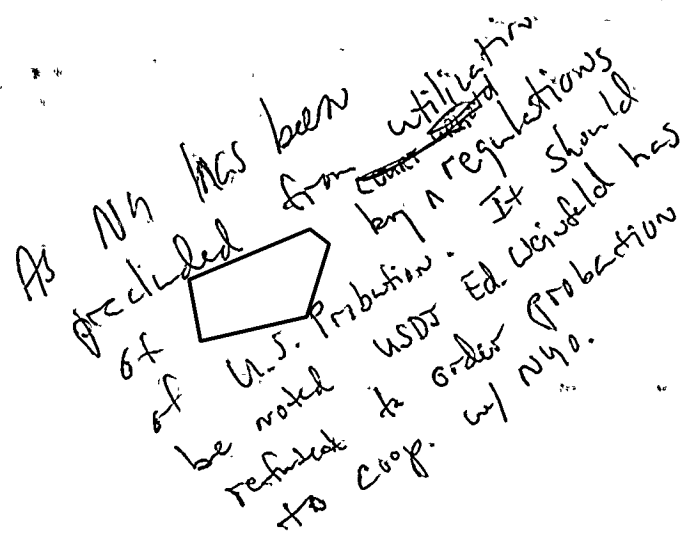 As NY has been
precluded from utilization
of by ^ regulations
of U.S. Probation. It should
be noted USDJ Ed. Weinfeld has
refused to order probation
to coop. w/ NYO.